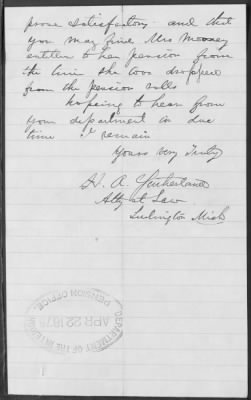 prove satisfactory and that
you may find Mrs Mooney
entitled to her pension from
the time she was dropped
from the pension rolls
hoping to hear from
your department in due
time I remain
Yours Very Truly
H. A. Sutherland
Atty at Law
Ludington Mich
DEPARTMENT OF THE INTERIOR
APR 22 187
PENSION OFFICE